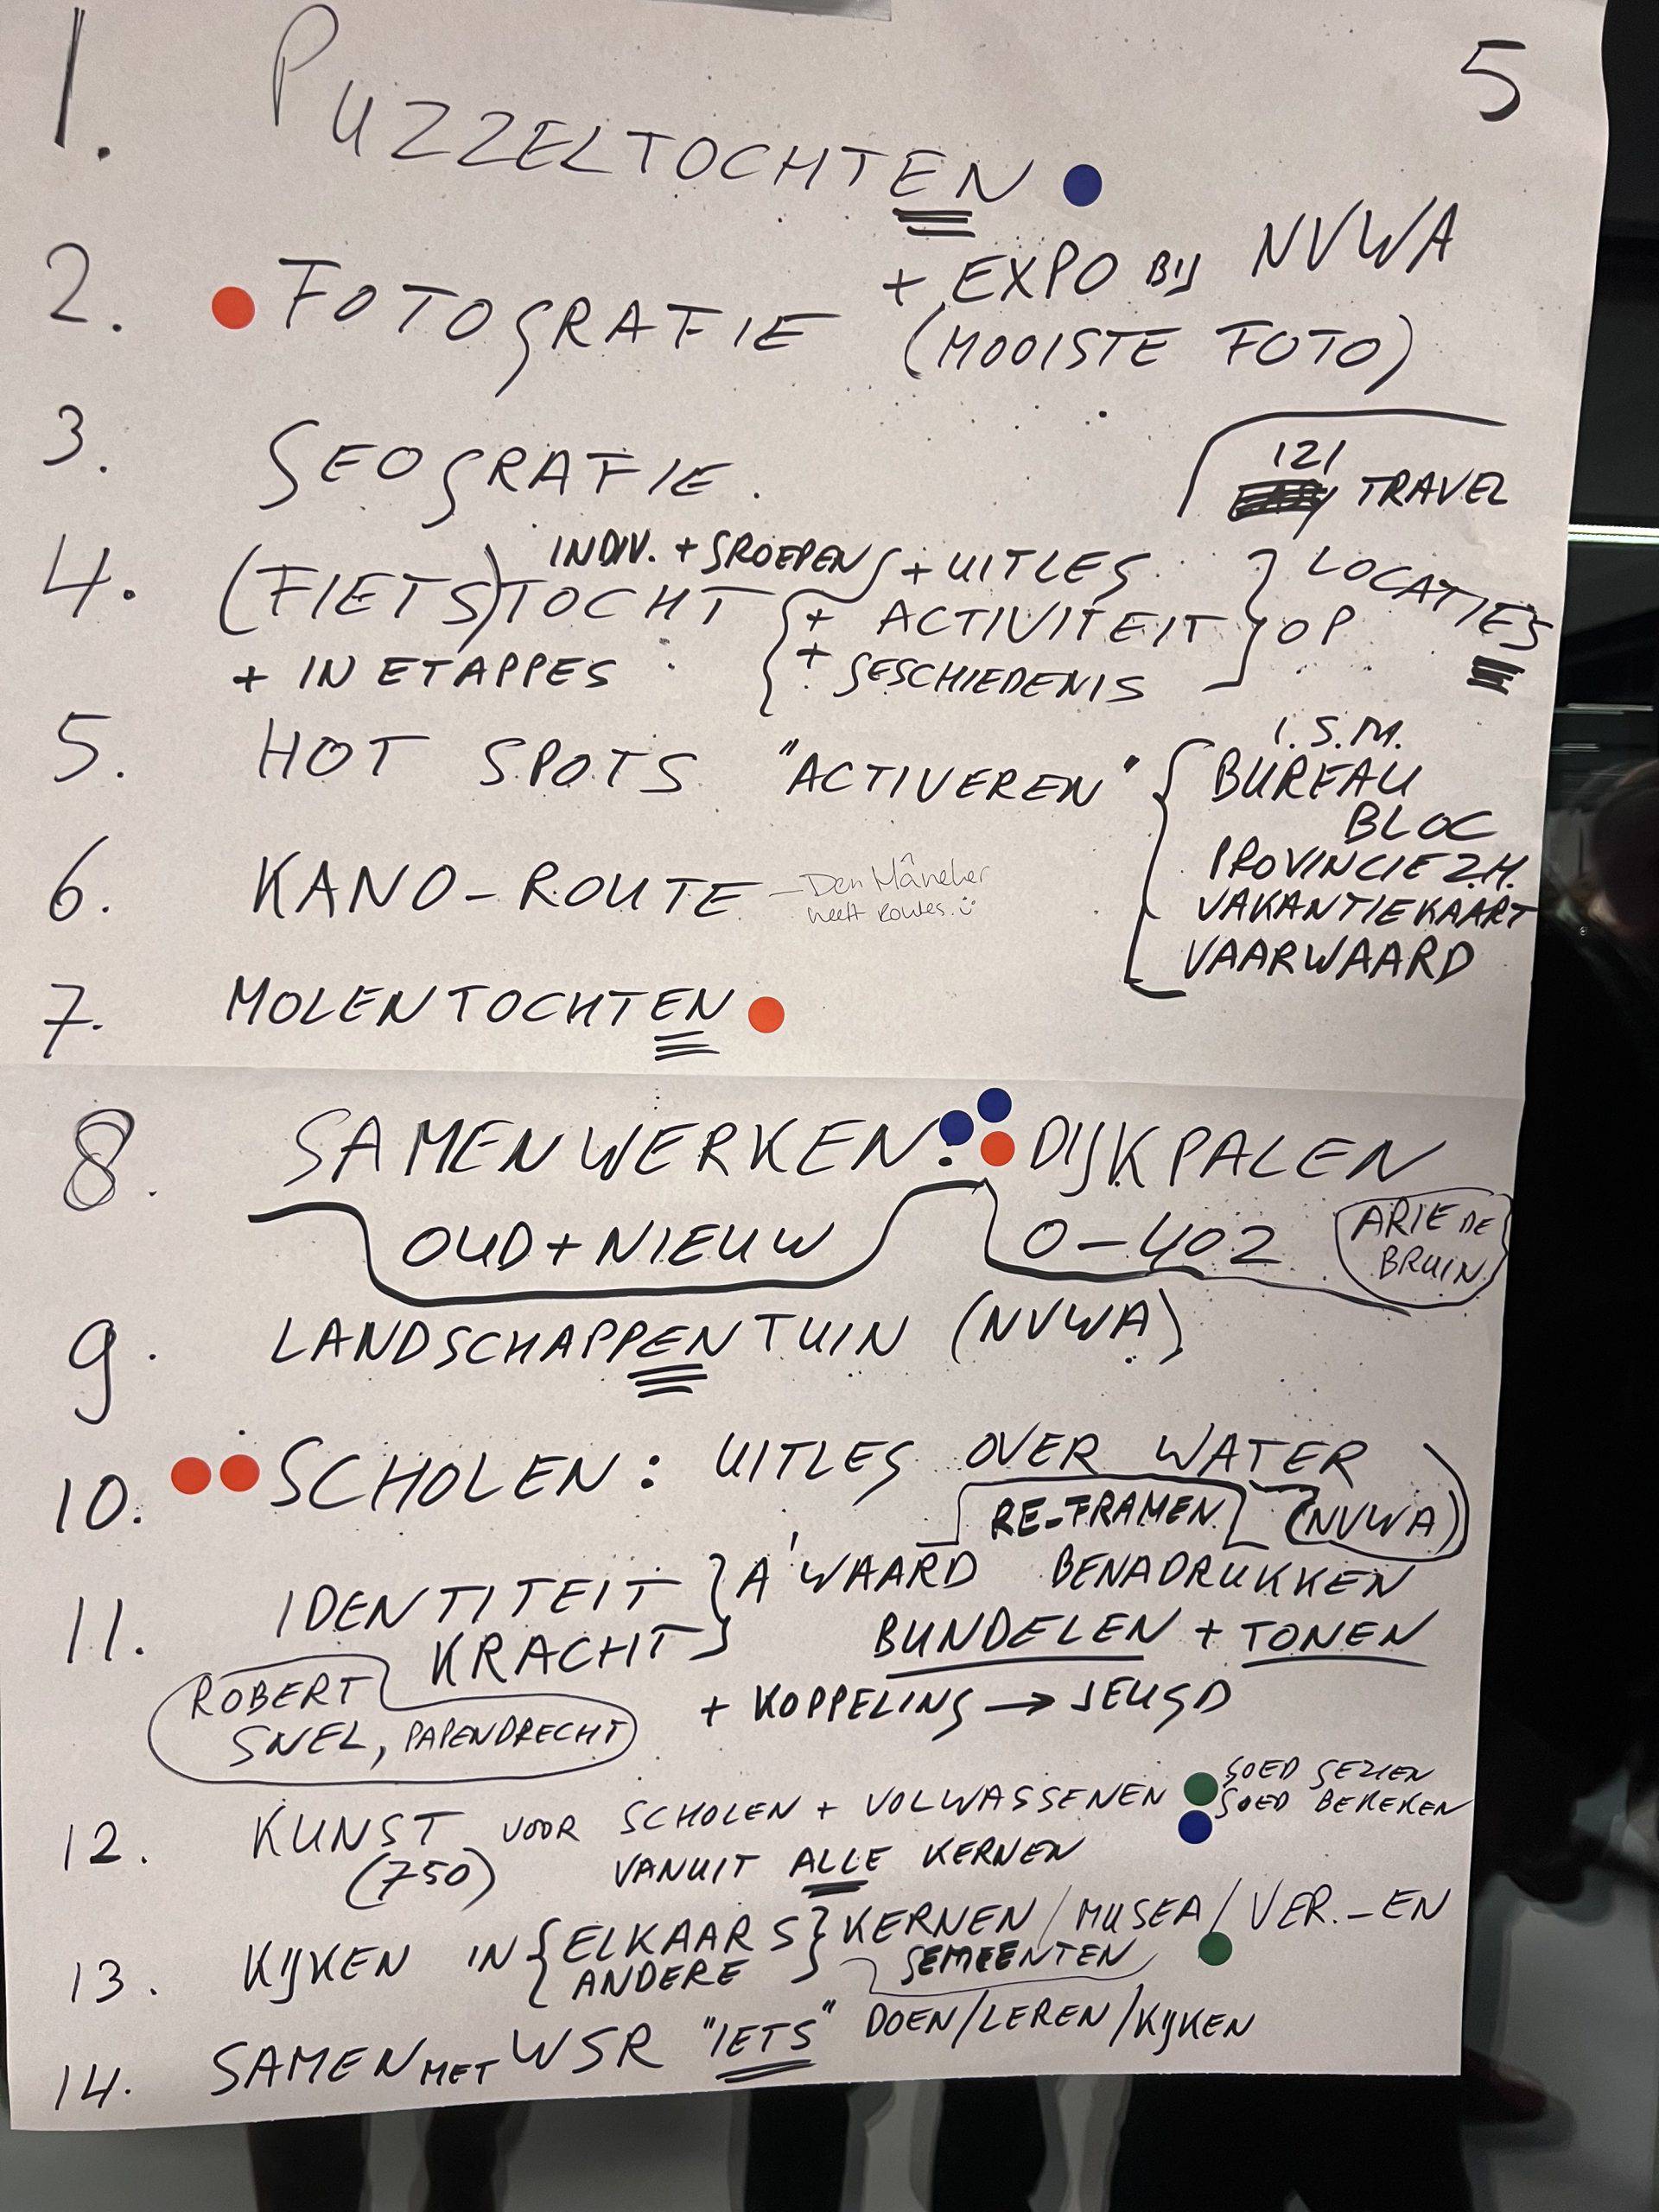 5
1. PUZZELTOCHTEN
2. FOTOGRAFIE + EXPO BIJ NVWA
(MOOISTE FOTO)
3. GEOGRAFIE.
121
TRAVEL
4. (FIETS)TOCHT INDIV. + GROEPEN
+ IN ETAPPES
+ UITLEG
+ ACTIVITEIT
+ GESCHIEDENIS
OP LOCATIES
5. HOT SPOTS "ACTIVEREN"
I.S.M.
BUREAU
BLOC
PROVINCIE Z.H.
VAKANTIEKAART
VAARWAARD
6. KANO-ROUTE - Den
heeft routes.
7. MOLENTOCHTEN
8. SAMENWERKEN: DIJKPALEN
OUD + NIEUW 0-402
ARIE DE
BRUIN
9. LANDSCHAPPENTUIN (NVWA)
10. SCHOLEN: UITLEG OVER WATER
RE-FRAMEN (NVWA)
11. IDENTITEIT
KRACHT
A'WAARD BENADRUKKEN
BUNDELEN + TONEN
+ KOPPELING → JEUGD
ROBERT
SNEL, PAPENDRECHT
12. KUNST VOOR SCHOLEN + VOLWASSENEN
(750) VANUIT ALLE KERNEN
GOED GEZIEN
GOED BEKEKEN
13. KIJKEN IN {ELKAARS} KERNEN/MUSEA/VER.-EN
ANDERE GEMEENTEN
14. SAMEN MET WSR "IETS" DOEN/LEREN/KIJKEN